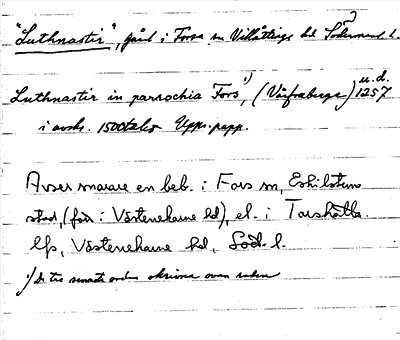 "Luthnastir", gård i Forsa sn Villåttinge hd Södermanl. l.
u.d.
Luthnastir in parrochia Fors,¹⁾ (Vårfruberga) 1257
i avskr. 1500talet Upps. papp.
Avser snarare en beb. i Fors sn, Eskilstuna
stad, (förr i Västerrekarne hd), el. i Torshälla
lfs, Västerrekarne hd, Söd. l.
¹⁾ De tre senaste orden skrivna ovan raden